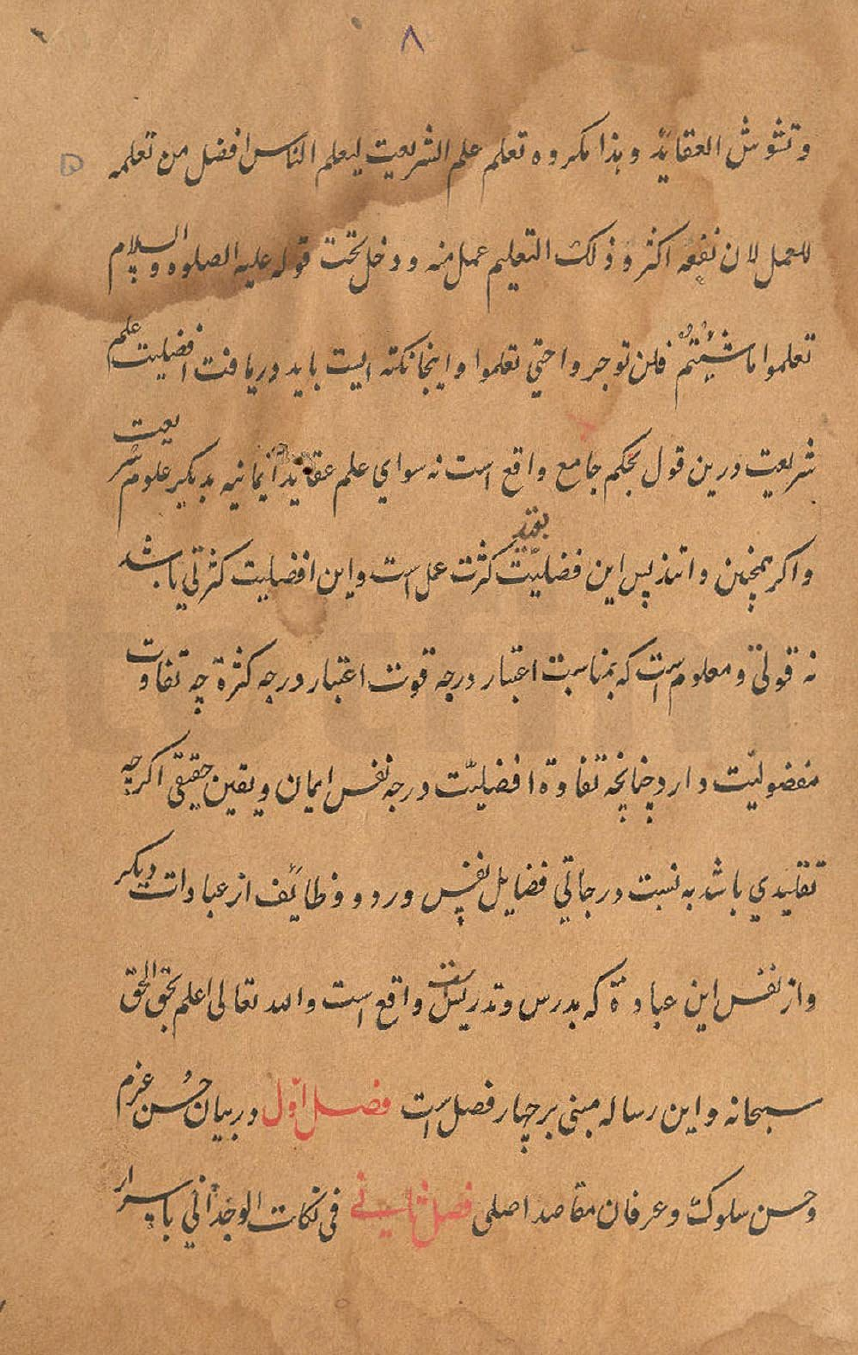 ٨
وتشوش العقائد وهذا مكروه تعلم علم الشريعت ليعلم الناس افضل من تعلمه
للعمل لان نفعه اكثر وذلك التعليم عمل منه ودخل تحت قوله عليه الصلوه والسلام
تعلموا ما شئتم فلن توجروا حتي تعلموا واينجا نكته ايست بايد دريافت افضليت علم
شريعت درين قول بحكم جامع واقع است نه سواي علم عقايد ايمانيه بديكر علوم شريعت
واكر همچنين دانند پس اين فضليّت بقيد كثرت عمل است واين افضليت كثرتي باشد
نه قوتي ومعلوم است كه بمناسبت اعتبار درجه قوت اعتبار درجه كثرة چه تفاوت
مفضوليّت دارد چنانچه تفاوة افضليّت درجه نفس ايمان ويقين حقيقي اكرچه
تقليدي باشد به نسبت درجاتي فضايل نفس ورد و وظائف از عبادات ديكر
واز نفس اين عبادة كه بدرس وتدريس است واقع است والله تعالى اعلم بحق الحق
سبحانه واين رساله مبني بر چهار فصل است فصل اول در بيان حُسن عزم
وحسن سلوك وعرفان مقاصد اصلى فصل ثاني في نكات الوجداني باسرار